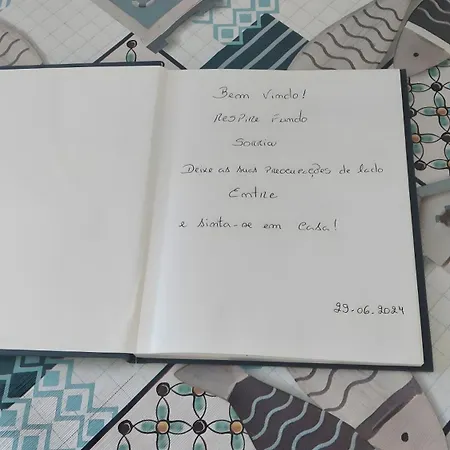 Bem Vindo!
Respire Fundo
Sorria
Deixe as suas preocupações de lado
Entre
e sinta-se em casa!
29-06-2024